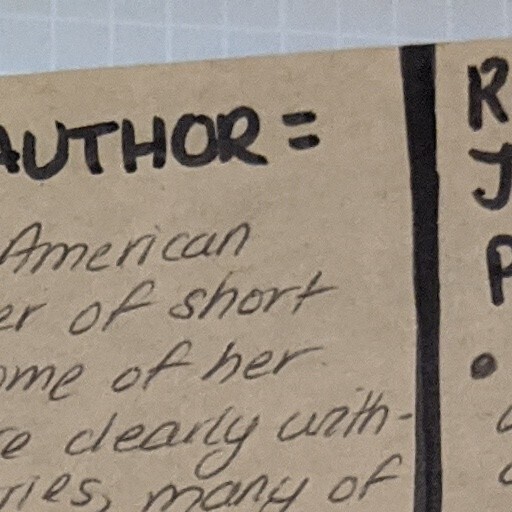 AUTHOR =
American
er of short
ome of her
e clearly with-
ries, many of
R
J
P
•